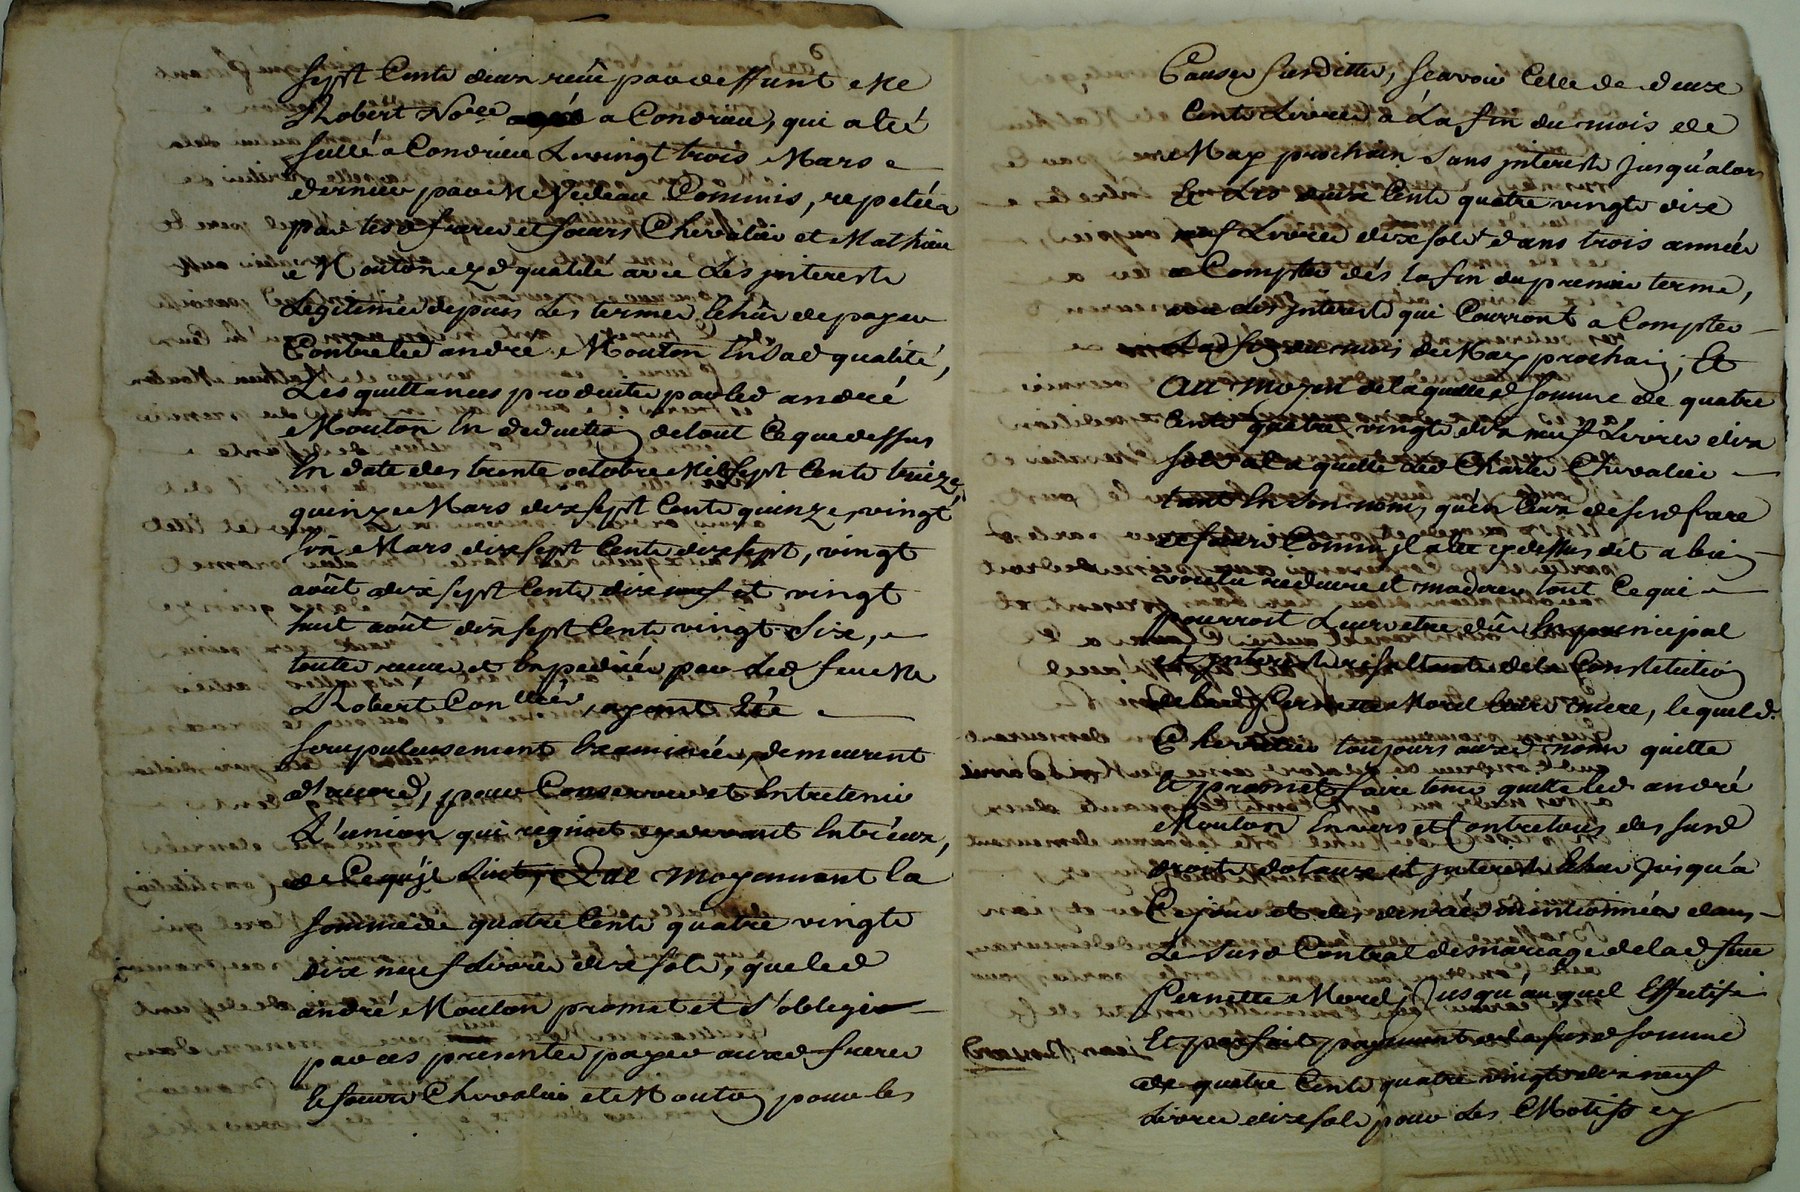 sept cents deux receu par deffunt Me
Robert No.re a Condrieu, qui a eté
sellé a Condrieu le vingt trois Mars
dernier par Me Commis, repetée
par lesd freres et soeurs Chevalier et Mathieu
Mouton ezd qualité avec les interests
Legitimes depuis les termes échûs de payer
Contre led andré Mouton en sad qualité,
Les quittances produites par led andré
Mouton En deduction detout Ceque dessus
En date des trente octobre Mil sept Cents treize,
quinze Mars dix sept Cents quinze, vingt
six Mars dix sept Cents dix sept, vingt
août dix sept Cents dix neuf et vingt
huit août dix sept Cents vingt six,
toutes receues et Expediées par led feu Me
Robert Con.lles, ayant Eté
scrupuleusement Examinées, demeurent
d'accord, pour Conserver et Entretenir
L'union qui regnoit cy devant Entr'eux,
de Cequi suit, Que moyennant la
somme de quatre Cents quatre vingts
dix neuf Livres dix sols, que led
andré Mouton promet et s'oblige
par ces presentes payer auxd freres
Et soeurs Chevalier et Mouton pour les
Causes susdittes, sçavoir Celle de deux
Cents Livres à La fin du mois de
May prochain sans interests jusqu'alors
Et Les deux Cents quatre vingts dix
neuf Livres dix sols dans trois années
a Compter dés la fin du premier terme,
avec les interests qui Courront a Compter
La fin du mois de May prochain, Et
Au moyen de laquelle d somme de quatre
Cents quatre vingts dix neuf Livres dix
sols a la quelle led Charles Chevalier
tant En son nom, qu'en Ceux de sesd frere
et soeurs Comm' il a eté cy dessus dit a bien
voulu reduire et moderer tout Ce qui
pourroit Leur etre dû En principal
et interests resultants de la Constitution
de lad Pernette Morel leur mere, lequel d.
Chevalier toujours auxd noms quitte
Et promet faire tenir quitte led andré
Mouton Envers et Contre tous des susd
droits dotaux et interests Echus jusqu'a
Ce jour et des denrées mentionnées dans
Le susd Contrat de mariage de lad feue
Pernette Morel, Jusqu'au quel Effectif
Et parfait payement de la susd somme
de quatre Cents quatre vingts dix neuf
Livres dix sols pour Les Motifs cy